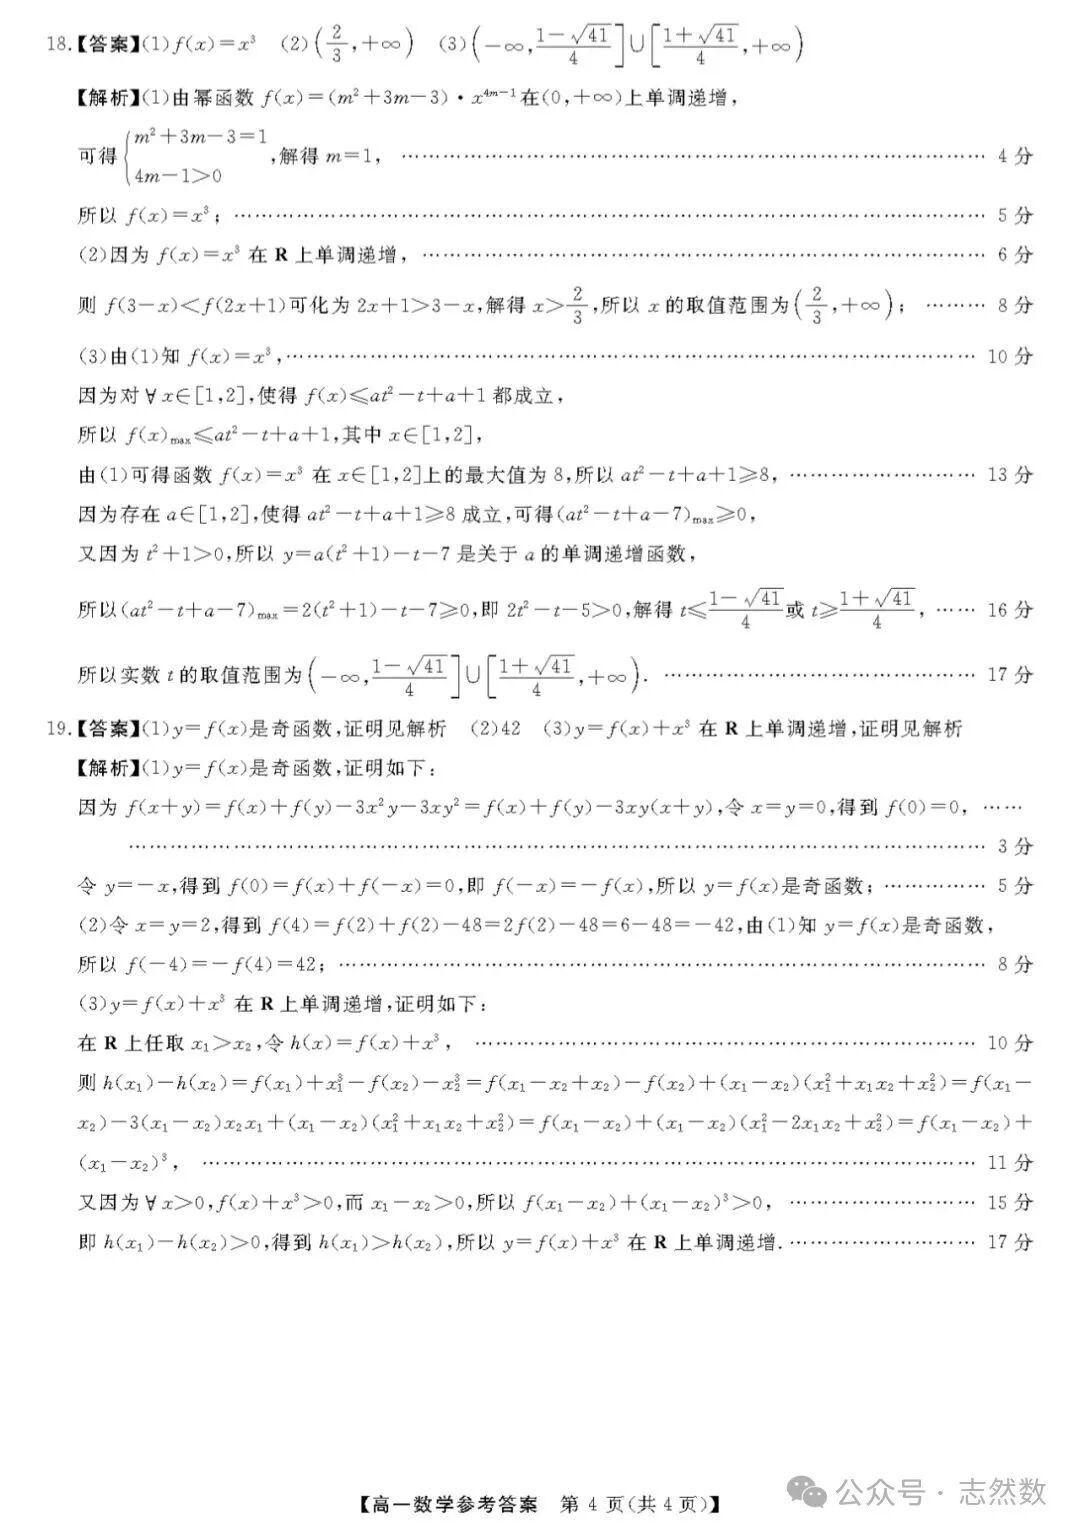 18.【答案】(1)f(x)=x³ (2)(2/3,+∞) (3)(-∞,(1-√41)/4]∪[(1+√41)/4,+∞)
【解析】(1)由幂函数 f(x)=(m²+3m-3)·x⁴ᵐ⁻¹在(0,+∞)上单调递增,
可得{m²+3m-3=1
4m-1>0
,解得 m=1, …………………………………… 4 分
所以 f(x)=x³; …………………………………… 5 分
(2)因为 f(x)=x³ 在 R 上单调递增, …………………………………… 6 分
则 f(3-x)<f(2x+1)可化为 2x+1>3-x,解得 x>2/3,所以 x 的取值范围为(2/3,+∞); ……… 8 分
(3)由(1)知 f(x)=x³, …………………………………… 10 分
因为对∀x∈[1,2],使得 f(x)≤at²-t+a+1 都成立,
所以 f(x)max≤at²-t+a+1,其中 x∈[1,2],
由(1)可得函数 f(x)=x³ 在 x∈[1,2]上的最大值为 8,所以 at²-t+a+1≥8, ……………………… 13 分
因为存在 a∈[1,2],使得 at²-t+a+1≥8 成立,可得(at²-t+a-7)max≥0,
又因为 t²+1>0,所以 y=a(t²+1)-t-7 是关于 a 的单调递增函数,
所以(at²-t+a-7)max=2(t²+1)-t-7≥0,即 2t²-t-5>0,解得 t≤(1-√41)/4或 t≥(1+√41)/4, …… 16 分
所以实数 t 的取值范围为(-∞,(1-√41)/4]∪[(1+√41)/4,+∞). …………………………………… 17 分
19.【答案】(1)y=f(x)是奇函数,证明见解析 (2)42 (3)y=f(x)+x³ 在 R 上单调递增,证明见解析
【解析】(1)y=f(x)是奇函数,证明如下:
因为 f(x+y)=f(x)+f(y)-3x²y-3xy²=f(x)+f(y)-3xy(x+y),令 x=y=0,得到 f(0)=0, ……
…………………………………… 3 分
令 y=-x,得到 f(0)=f(x)+f(-x)=0,即 f(-x)=-f(x),所以 y=f(x)是奇函数; …………… 5 分
(2)令 x=y=2,得到 f(4)=f(2)+f(2)-48=2f(2)-48=6-48=-42,由(1)知 y=f(x)是奇函数,
所以 f(-4)=-f(4)=42; …………………………………… 8 分
(3)y=f(x)+x³ 在 R 上单调递增,证明如下:
在 R 上任取 x₁>x₂,令 h(x)=f(x)+x³, …………………………………… 10 分
则 h(x₁)-h(x₂)=f(x₁)+x₁³-f(x₂)-x₂³=f(x₁-x₂+x₂)-f(x₂)+(x₁-x₂)(x₁²+x₁x₂+x₂²)=f(x₁-
x₂)-3(x₁-x₂)x₂x₁+(x₁-x₂)(x₁²+x₁x₂+x₂²)=f(x₁-x₂)+(x₁-x₂)(x₁²-2x₁x₂+x₂²)=f(x₁-x₂)+
(x₁-x₂)³, …………………………………… 11 分
又因为∀x>0,f(x)+x³>0,而 x₁-x₂>0,所以 f(x₁-x₂)+(x₁-x₂)³>0, ……………………… 15 分
即 h(x₁)-h(x₂)>0,得到 h(x₁)>h(x₂),所以 y=f(x)+x³ 在 R 上单调递增. ……………………… 17 分
公众号·志然数
【高一数学参考答案 第 4 页(共 4 页)】